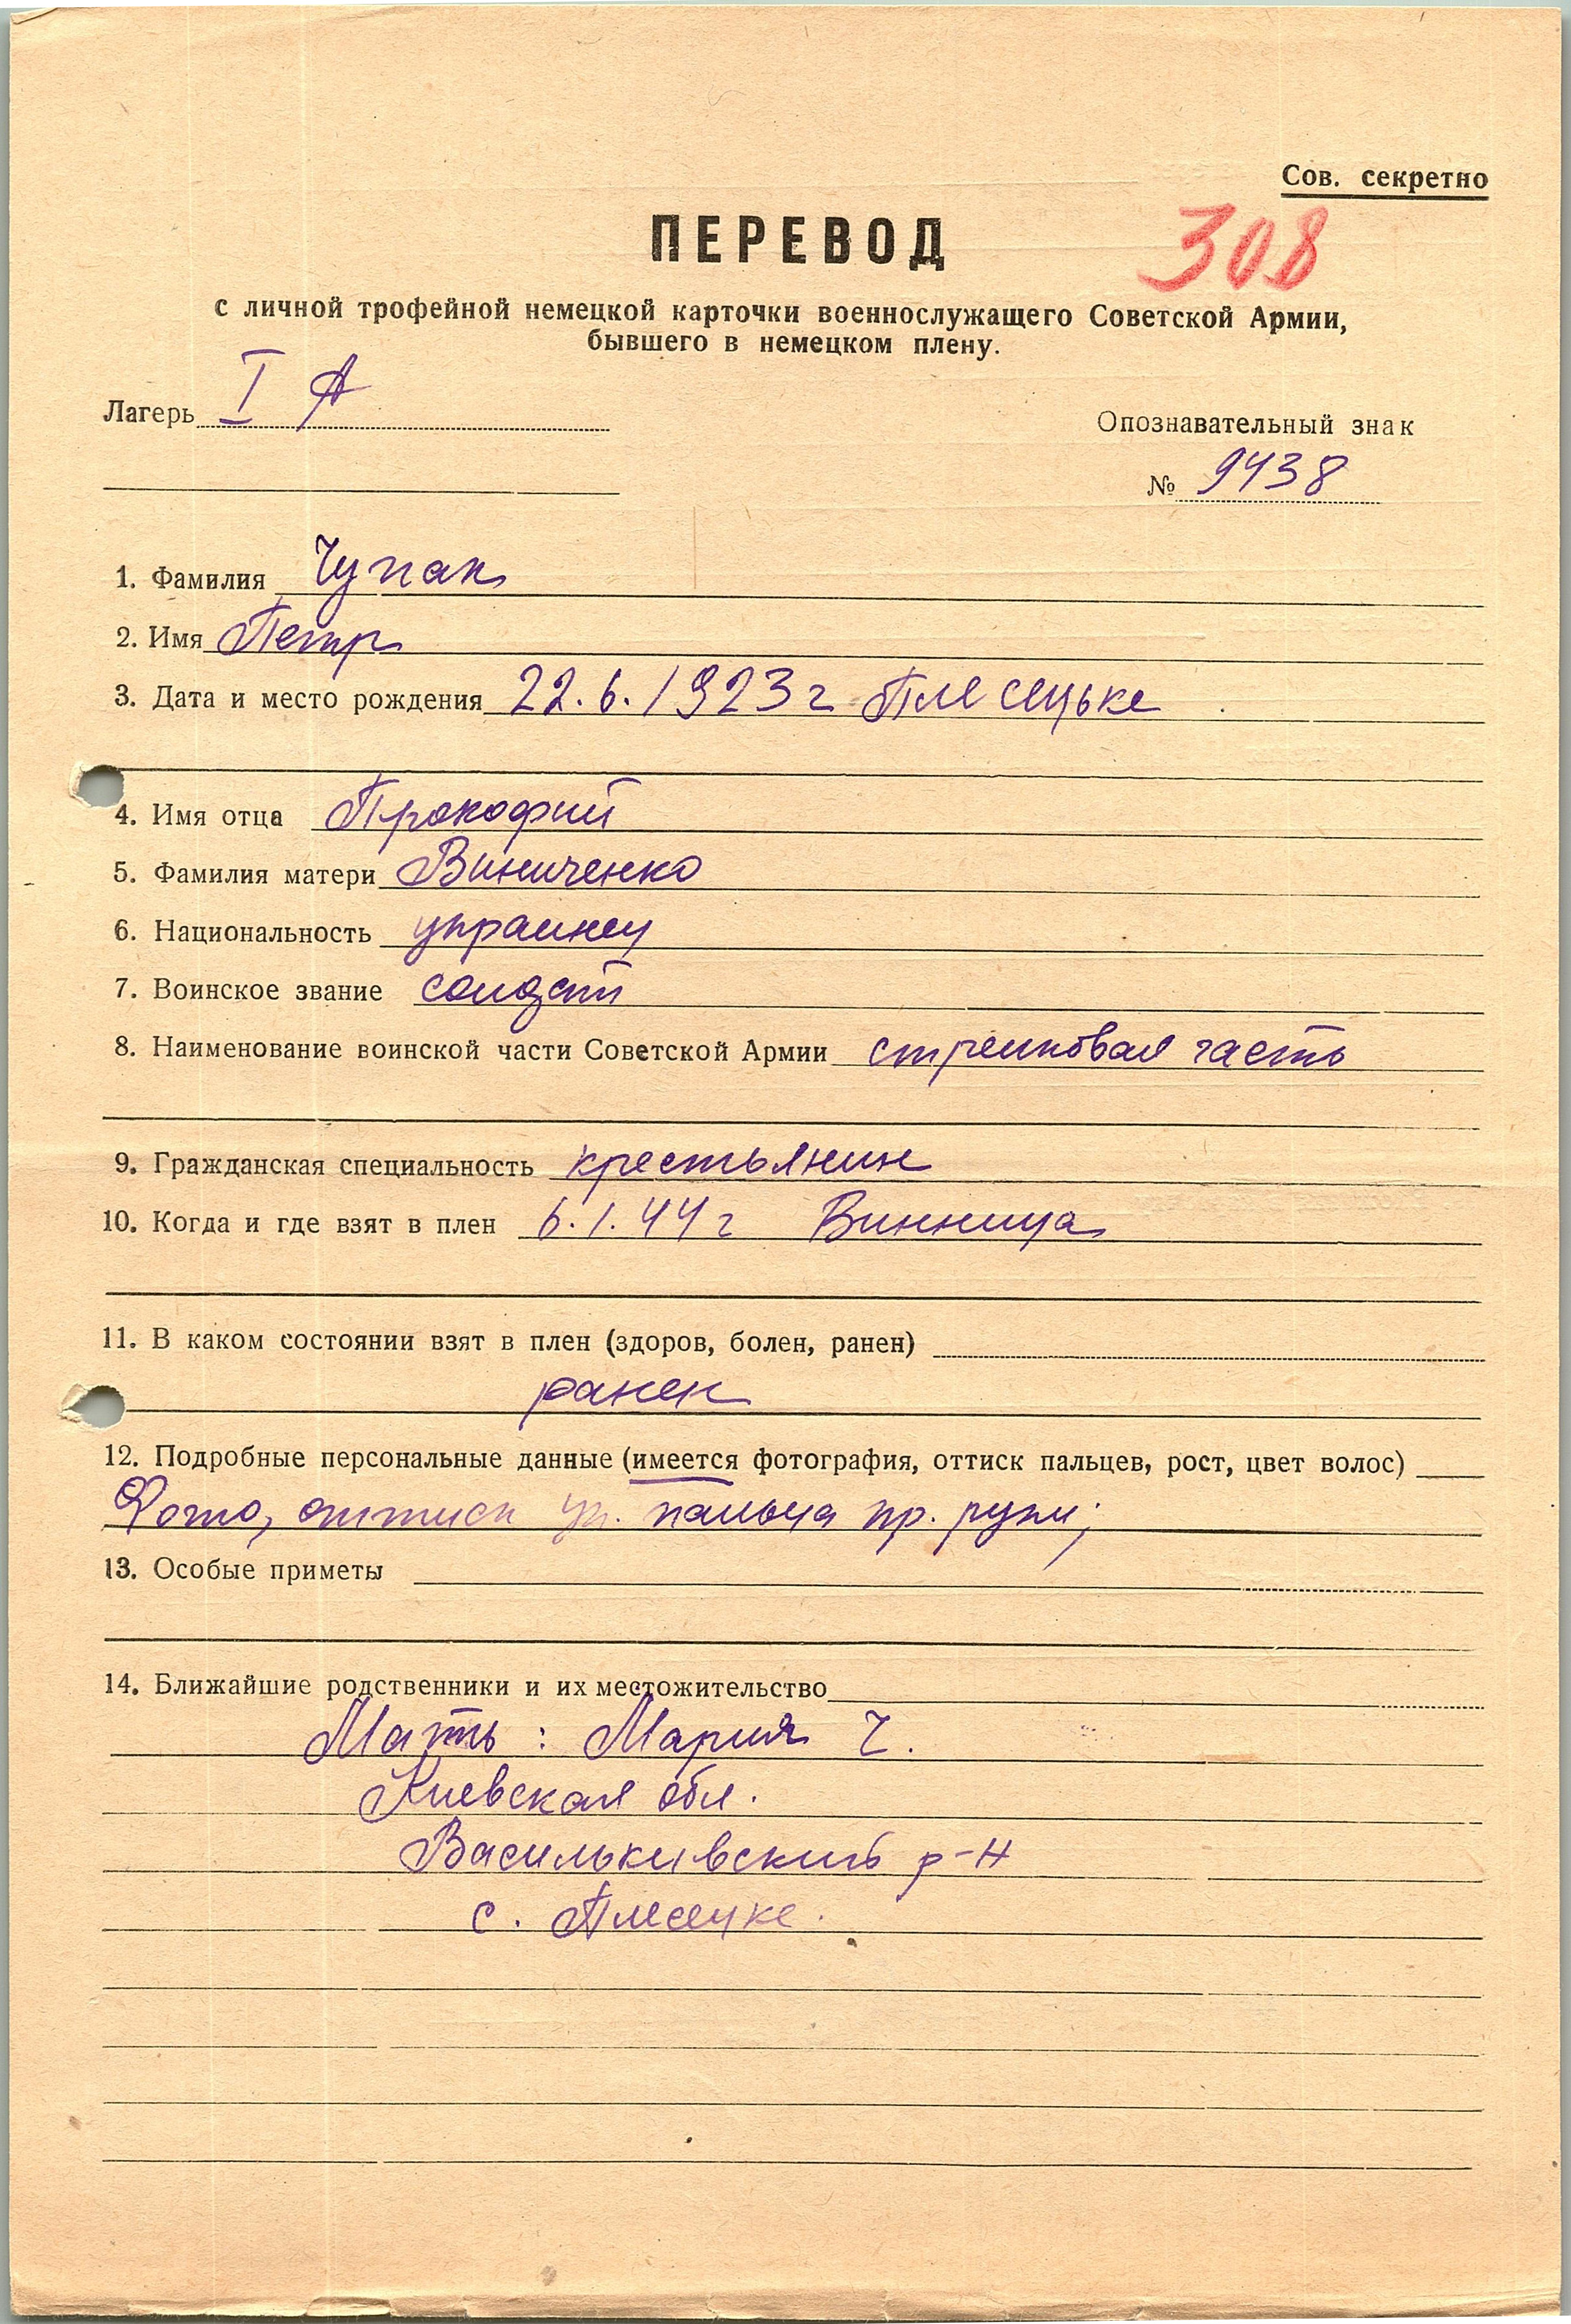 Сов. секретно
ПЕРЕВОД
308
с личной трофейной немецкой карточки военнослужащего Советской Армии,
бывшего в немецком плену.
Лагерь I A
Опознавательный знак
№ 9438
1. Фамилия Чупак
2. Имя Петр
3. Дата и место рождения 22.6.1923 г Плесецьке
4. Имя отца Прокофий
5. Фамилия матери Виниченко
6. Национальность украинец
7. Воинское звание солдат
8. Наименование воинской части Советской Армии стрелковая часть
9. Гражданская специальность крестьянин
10. Когда и где взят в плен 6.1.44 г Винница
11. В каком состоянии взят в плен (здоров, болен, ранен)
ранен
12. Подробные персональные данные (имеется фотография, оттиск пальцев, рост, цвет волос)
Фото, оттиск ук. пальца пр. руки;
13. Особые приметы
14. Ближайшие родственники и их местожительство
Мать: Мария Ч.
Киевская обл.
Василькивский р-н
с. Плесецке.